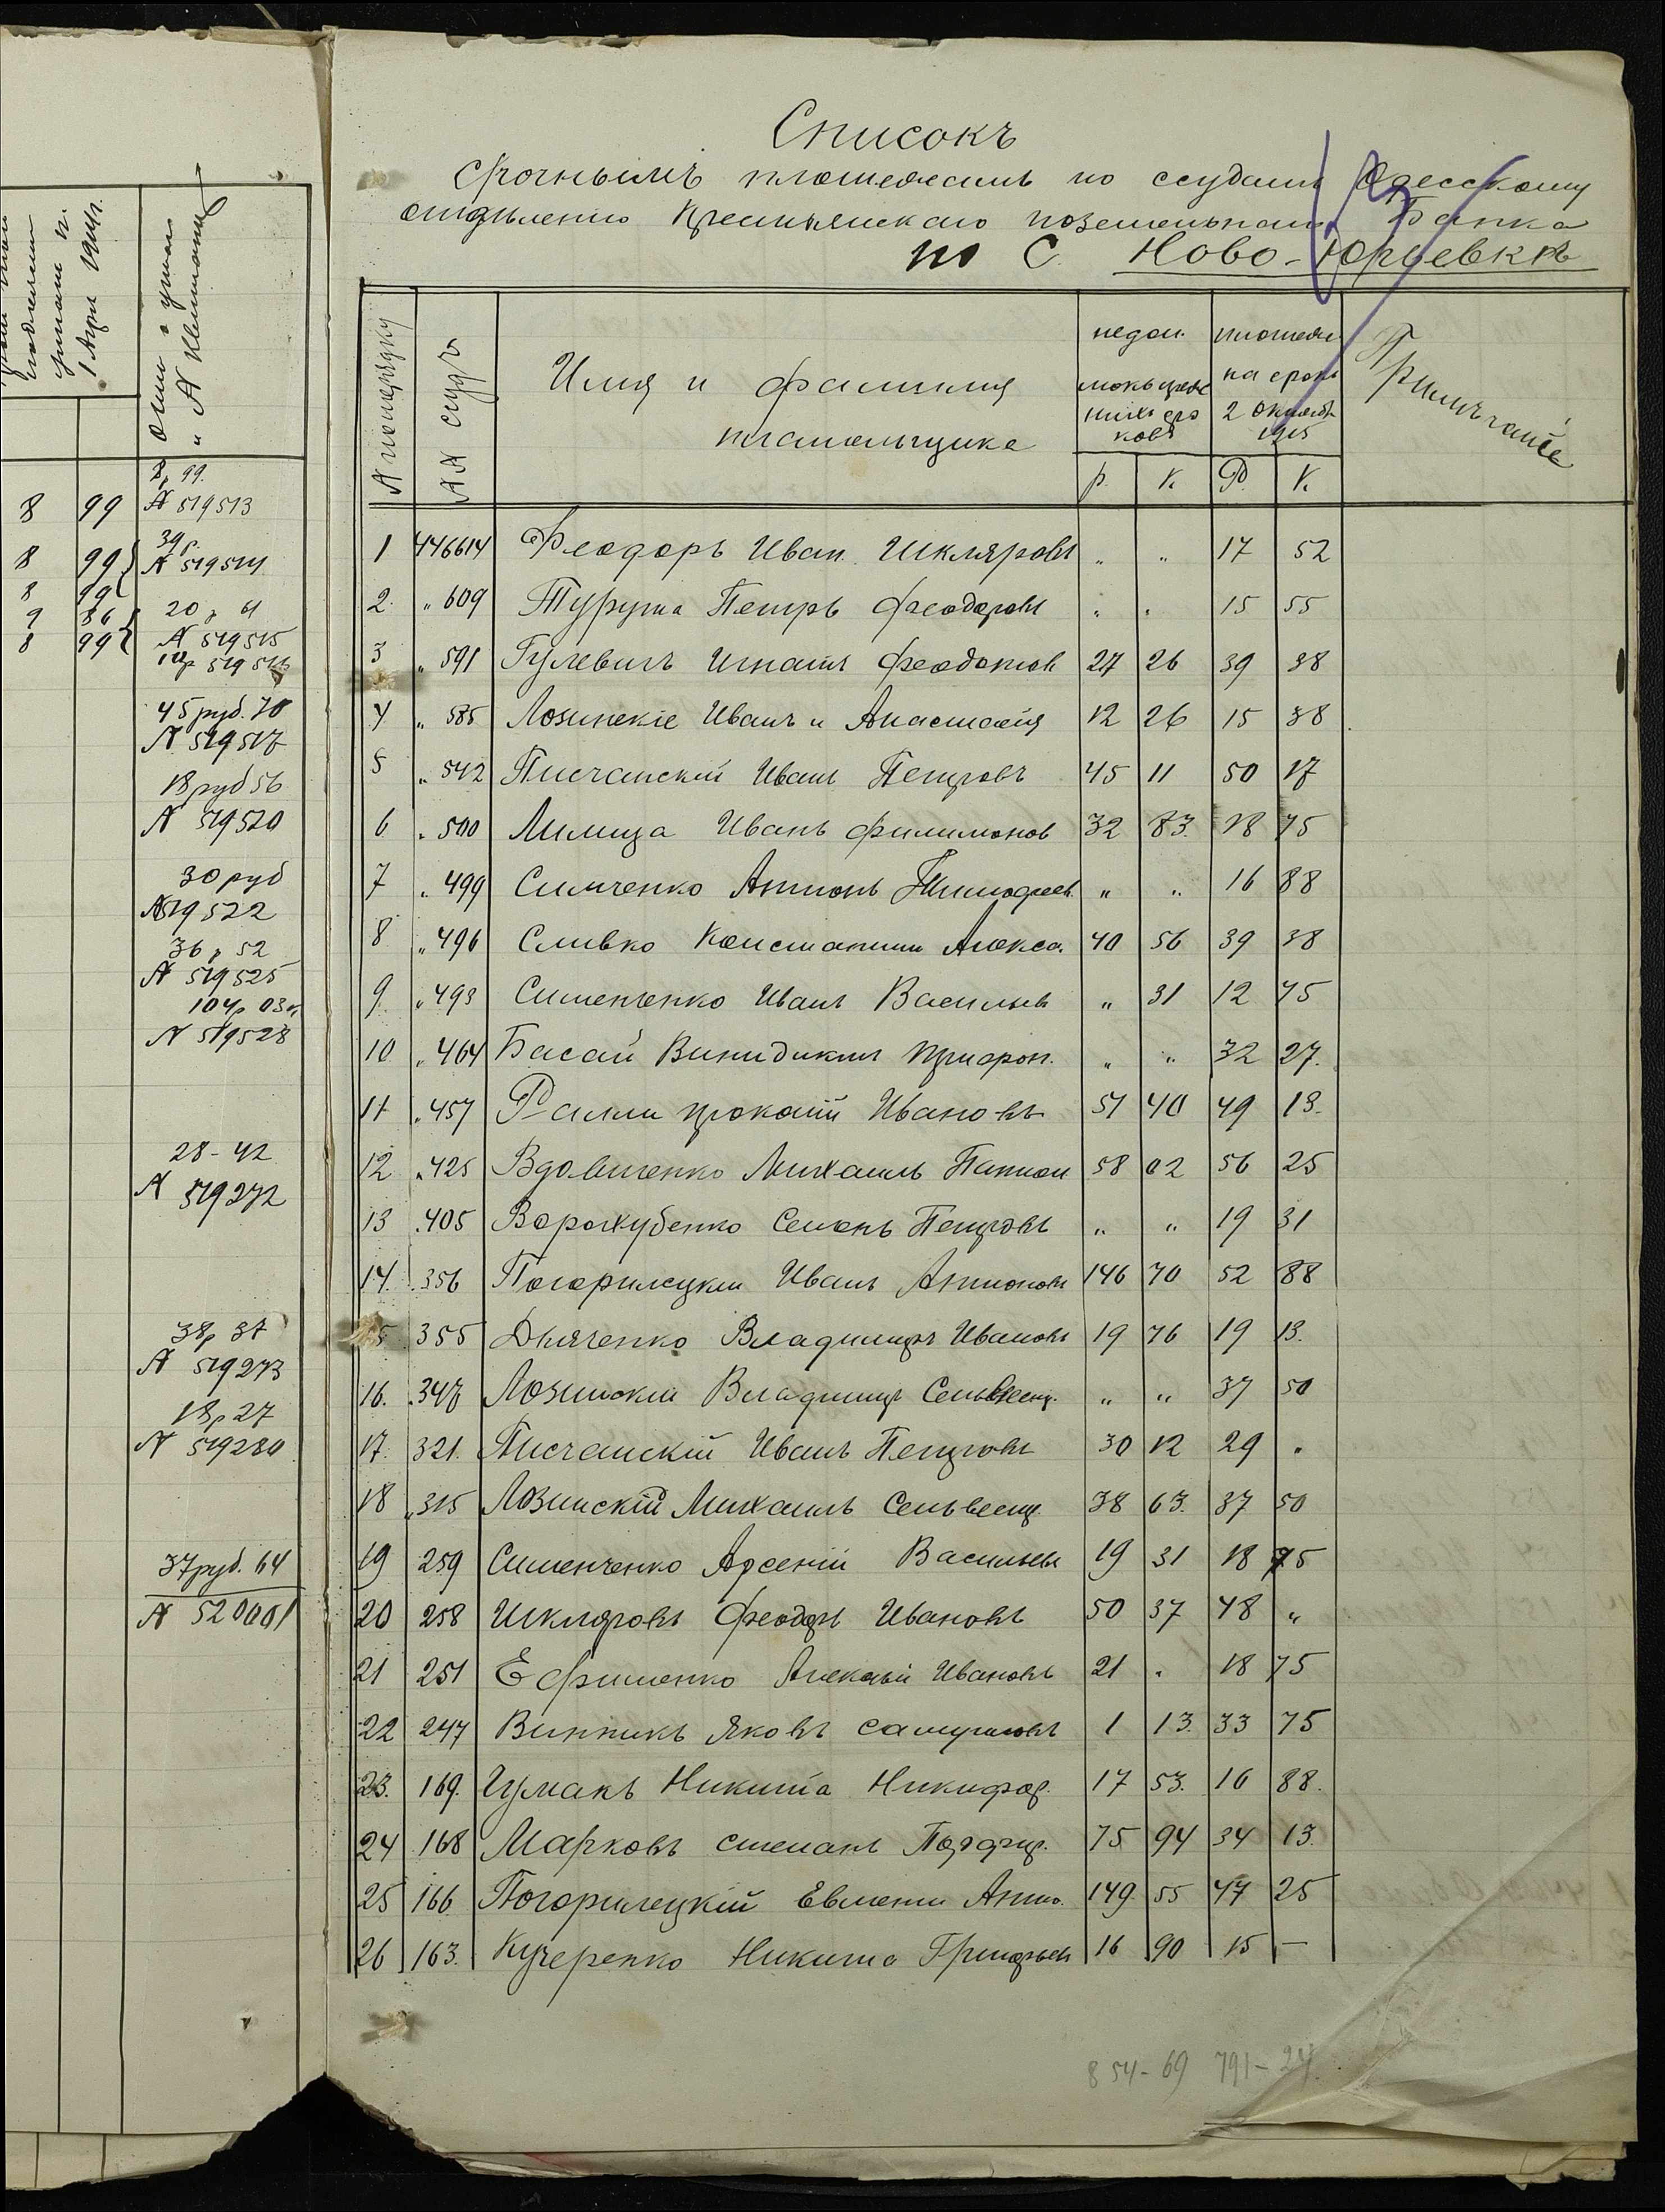 8 99
8 99
8 99
9 86
8 99
8 р 99.
№ 519513
39 р.
№ 519514
20 р 61
№ 519515
45 руб. 70
№ 519517
18 руб 56
№ 519520
30 руб
№ 519522
36 р 52
№ 519525
104 р 03 к
№ 519528
28 - 42
№ 519272
38 р 37
№ 519273
18 р 27
№ 519280
37 руб. 64
№ 520001
Списокъ
срочнымъ платежамъ по ссудамъ Одесскому
отдѣленію Крестьянскаго поземельнаго Банка
по С. Ново-Юрьевкѣ
№ по порядку
№№ ссудъ
Имя и фамилия плательщика
недоимокъ прежнихъ сроковъ
платежи на срокъ 2 Октября 1915
Примѣчаніе
р. К. Р. К.
1 446614 Феодоръ Иван. Шкляровъ " " 17 52
2. " 609 Турута Петръ Феодоровъ " " 15 55
3 " 591 Гулевичъ Игнатъ Феодотов 27 26 39 38
4 " 585 Лозинскіе Иванъ и Анастасія 12 26 15 38
5 " 542 Писчанскій Иванъ Петровъ 45 11 50 17
6 " 500 Лимица Иванъ Филимонов 32 83. 18 75
7 " 499 Симченко Антонъ Тимофеев " " 16 88
8 " 496 Сливко Константин Алекса. 40 56 39 38
9. " 493 Сименченко Иванъ Васильев " 31 12 75
10 " 464 Басай Винидиктъ Трифон. " " 32 27.
11 " 457 Ралли Прокопій Ивановъ 51 40 49 13.
12 " 425 Вдовиченко Михаилъ Пантел 58 02 56 25
13 " 405 Ворожубенко Семенъ Петровъ " " 19 31
14. " 356 Погорилецкий Иванъ Антонов 146 70 52 88
15 355 Дьяченко Владимиръ Ивановъ 19 76 19 13.
16. " 347 Лозинскій Владимир Сельвест. " " 37 50
17. 321. Писчанскій Иванъ Петровъ 30 12 29 "
18 " 315 Лозинскій Михаилъ Сельвест 38 63. 37 50
19 259 Сименченко Арсеній Васильевъ 19 31 18 75
20 258 Шкляровъ Феодоръ Ивановъ 50 37 48 "
21 251 Ефименко Алексѣй Ивановъ 21 " 18 75
22 247 Винникъ Яковъ Самуиловъ 1 13. 33 75
23. 169. Чумакъ Никита Никифор. 17 53. 16 88.
24 168 Марковъ Степанъ Порфир. 75 94 34 13.
25 166 Погорилецкій Евмени Анто. 149 55 47 25
26 163. Кучеренко Никита Григорьев 16 90 15 —
854-69 791-24